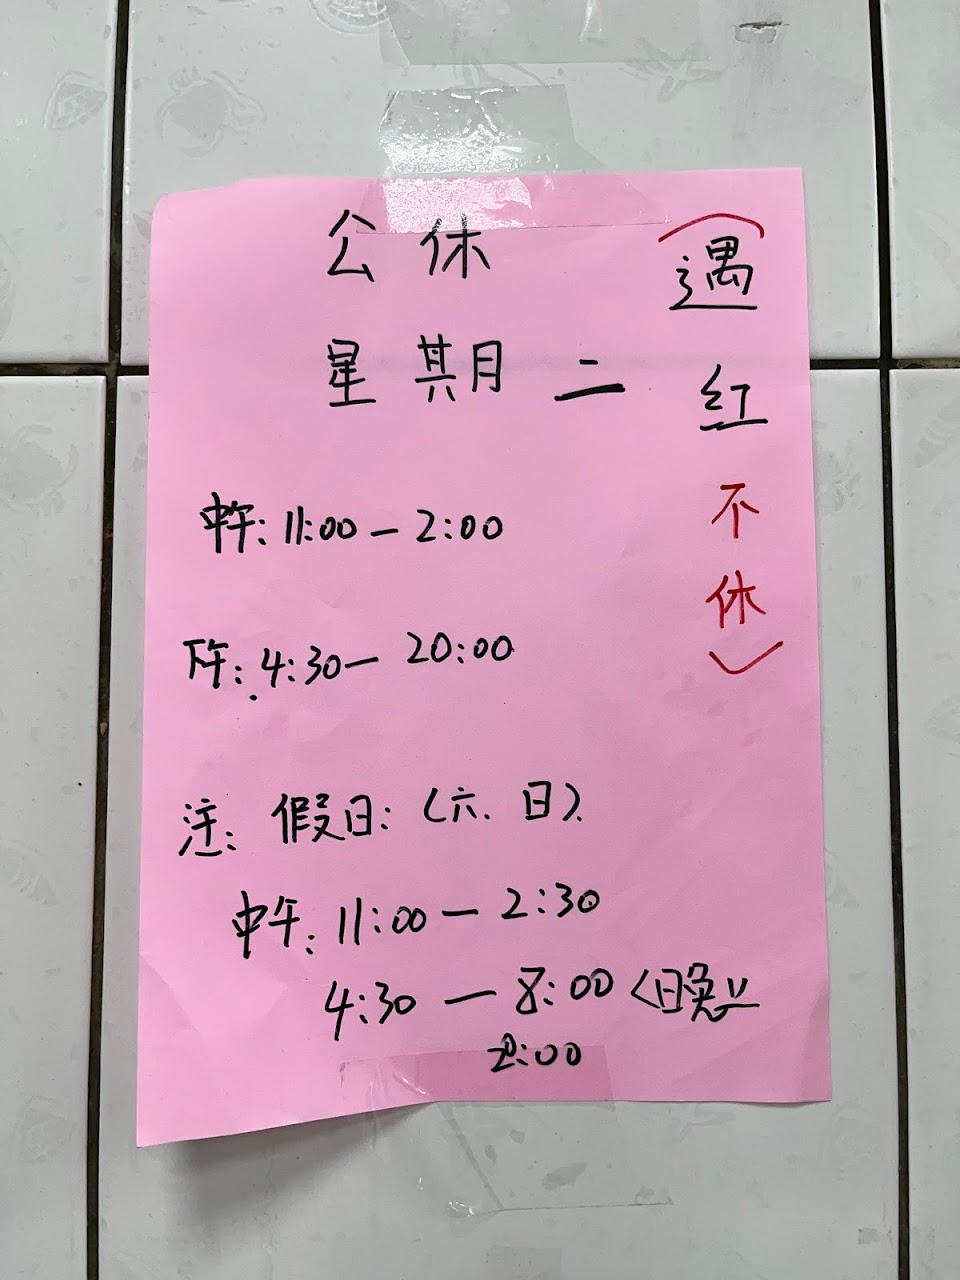 公休
星期二
（遇红不休）
中午：11:00—2:00
下午：4:30—20:00
注：假日：（六、日）
中午：11:00—2:30
4:30—8:00〈晚〉